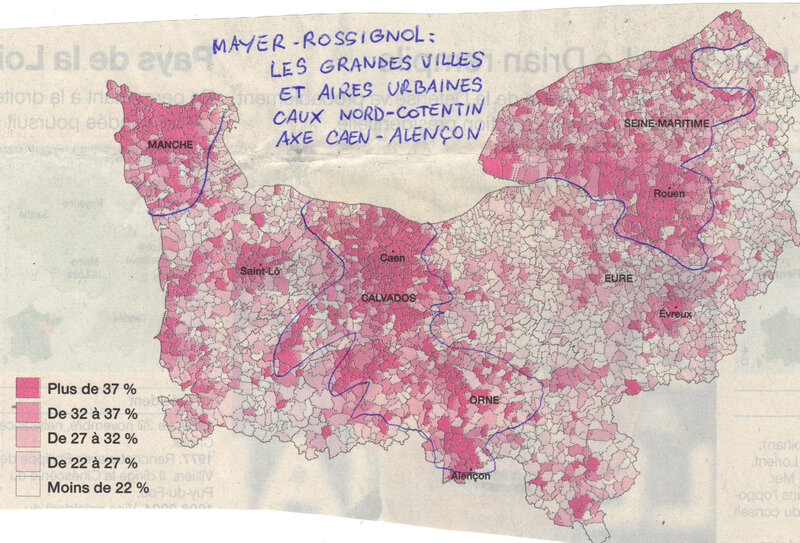 MAYER-ROSSIGNOL:
LES GRANDES VILLES
ET AIRES URBAINES
CAUX NORD-COTENTIN
AXE CAEN-ALENÇON
SEINE-MARITIME
MANCHE
Rouen
Caen
Saint-Lô
EURE
CALVADOS
Évreux
ORNE
Alençon
Plus de 37 %
De 32 à 37 %
De 27 à 32 %
De 22 à 27 %
Moins de 22 %